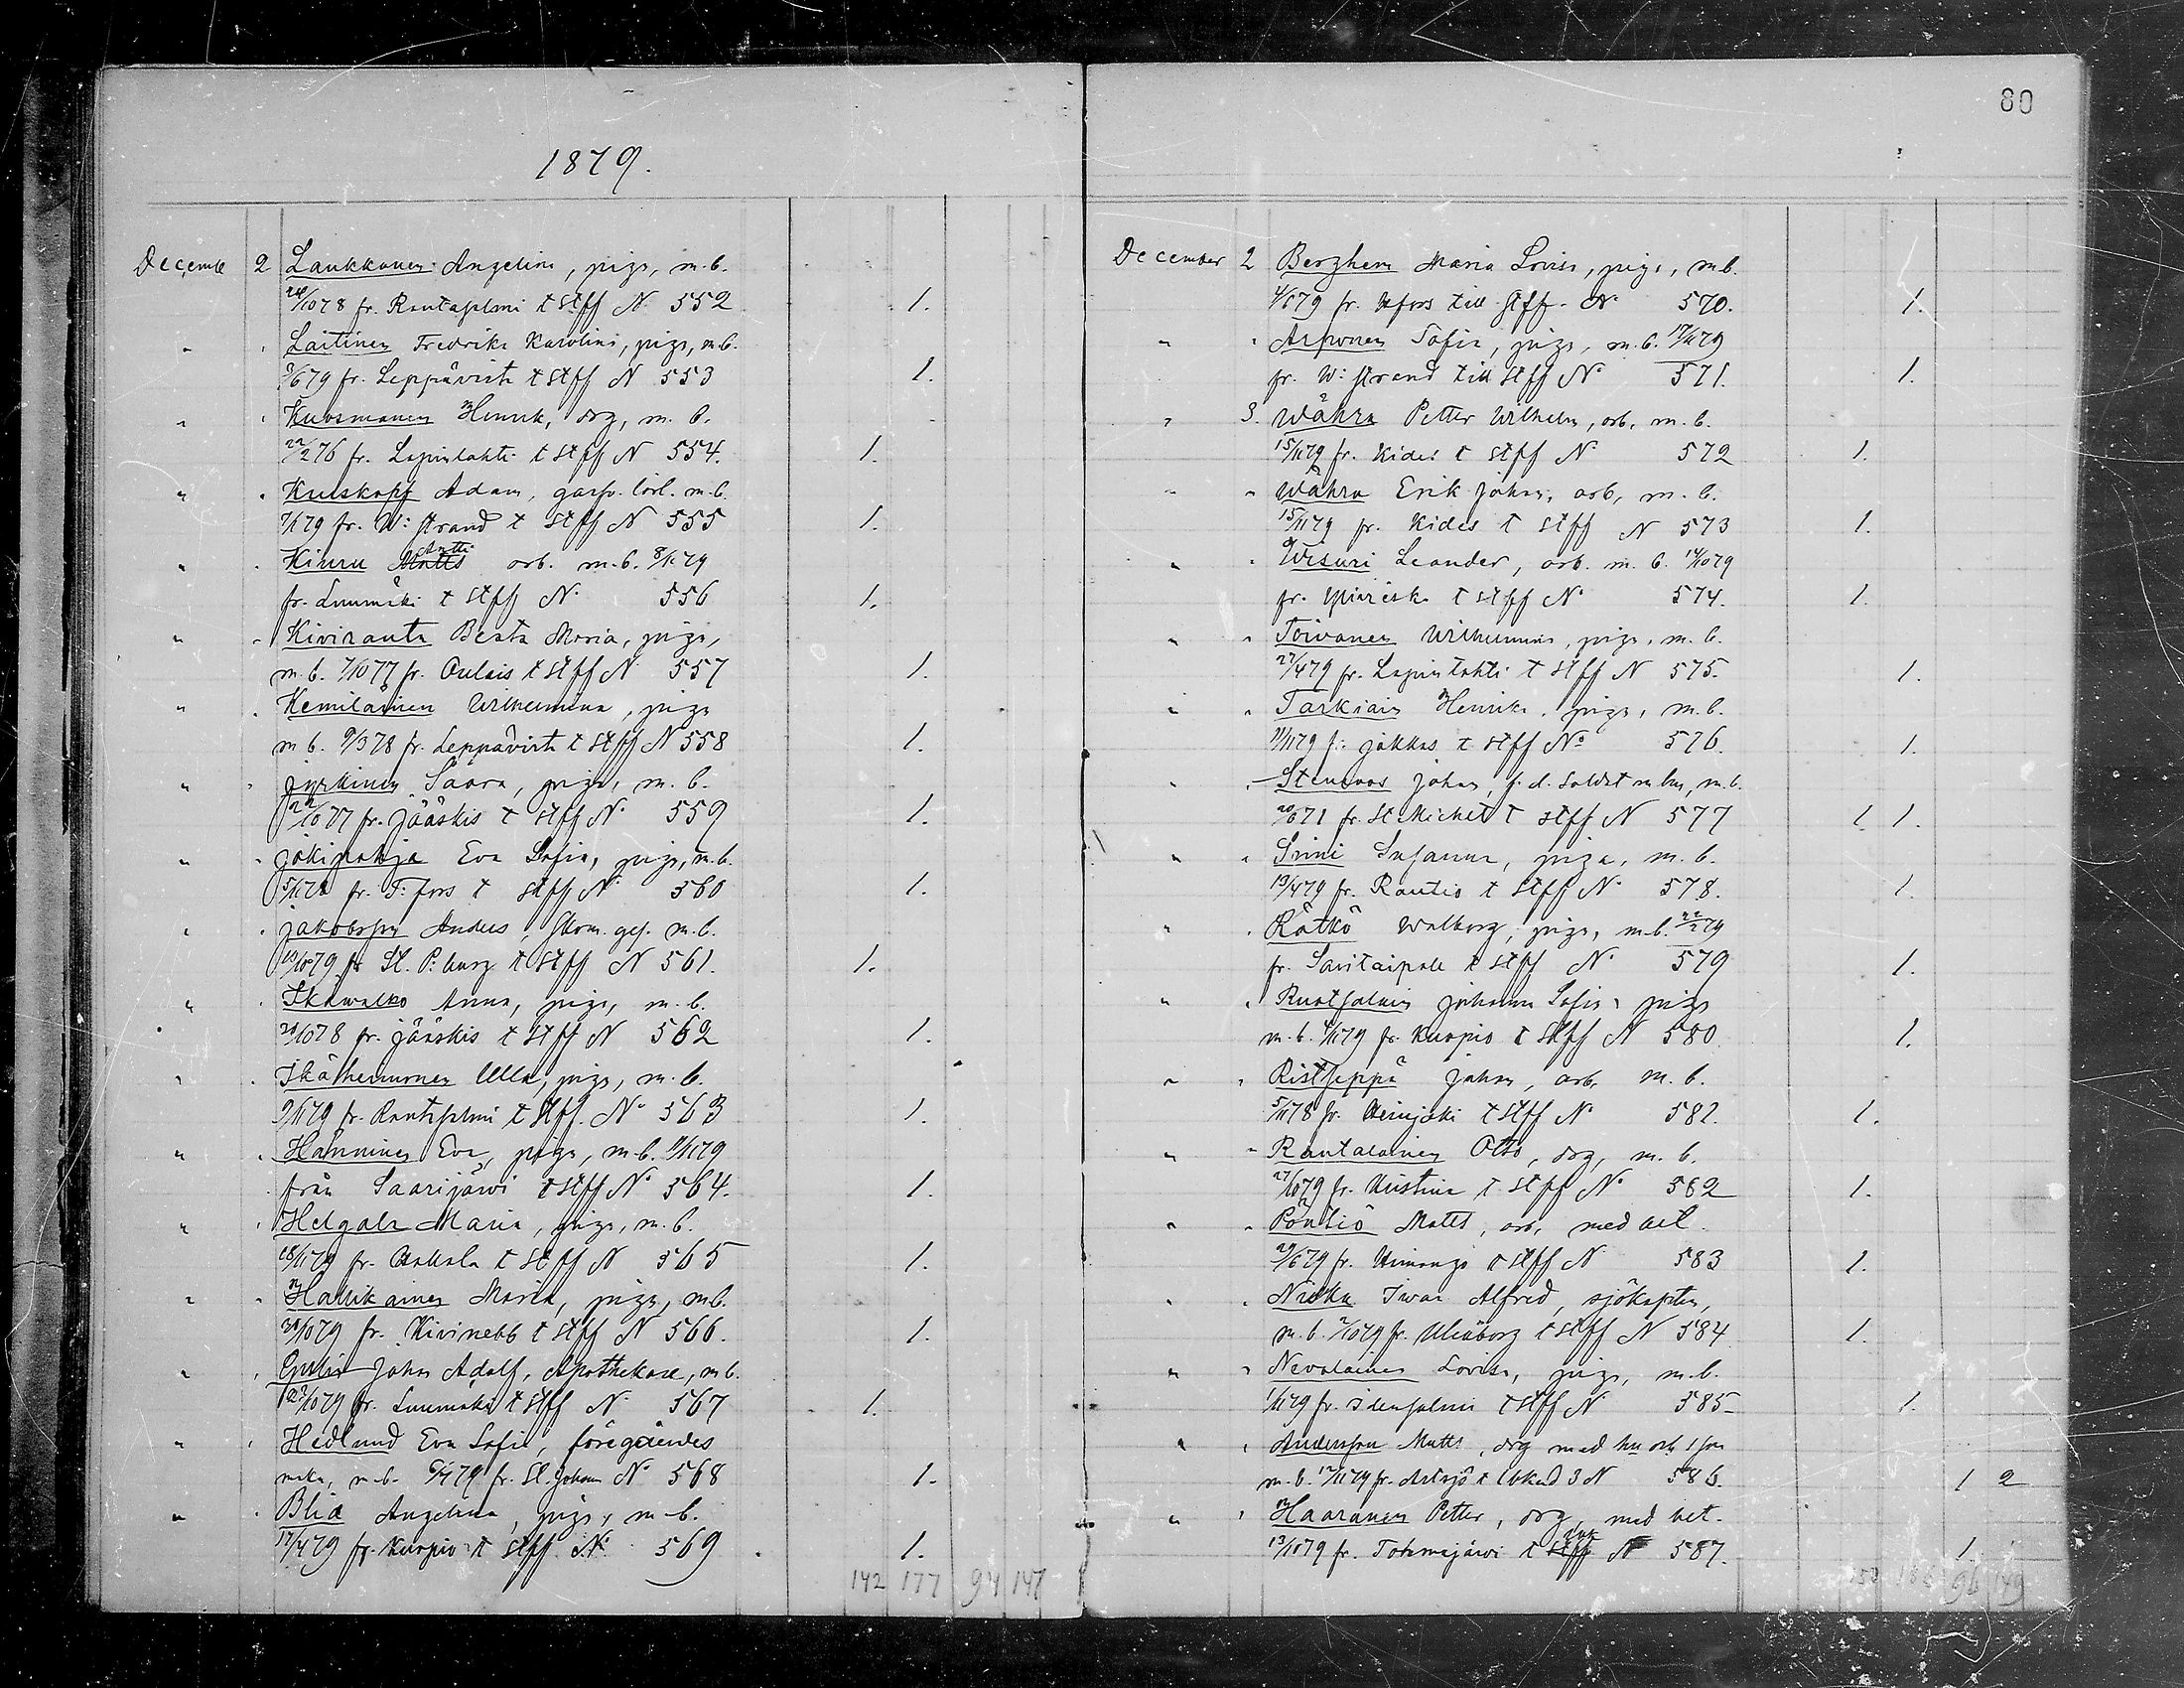 80
1879.
Decemb 2 Laukkanen Angelina, piga, m.b.
24/10 78 fr. Rantasalmi t Stff N 552 1.
" " Laitinen Fredrika Karolina, piga, m.b.
3/6 79 fr. Leppävirta t Stff N 553 1.
" " Kuosmanen Henrik, drg, m.b.
22/2 76 fr. Lapinlahti t Stff N 554. 1.
" " Kuuskopf Adam, garfv. lärl. m.b.
7/1 79 fr. W:strand t Stff N 555 1.
" " Kinru Antti arb. m.b. 8/1 79
fr. Luumäki t Stff N 556 1.
" " Kiviranta Beata Maria, piga,
m.b. 7/10 77 fr. Oulais t Stff N 557 1.
" " Kemiläinen Wilhelmina, piga
m b. 9/3 78 fr. Leppävirta t Stff N 558 1.
" " Jyrkinen Saara, piga, m.b.
22/10 77 fr. Jääskis t Stff N 559 1.
" " Jokipohja Eva Sofia, piga, m.b.
5/11 78 fr. T:fors t Stff N 560 1.
" " Jakobsson Anders, Skom. ges. m.b.
10/10 79 fr St. P:burg t Stff N 561. 1.
" " Ikäwalko Anna, piga, m.b.
20/10 78 fr. Jääskis t Stff N 562 1.
" " Ikäheimonen Ulla, piga, m.b.
9/11 79 fr. Rantasalmi t Stff. No 563 1.
" " Hänninen Eva, piga, m.b. 9/11 79
från Saarijärwi t Stff No 564. 1.
" " Helgala Maria, piga, m.b.
18/11 79 fr. t Stff N 565 1.
" " Hallikainen Maria, piga, m.b.
30/10 79 fr. Kivinebb t Stff N 566. 1.
" " Johan Adolf, Apothekare, m b.
22/10 79 fr. Luumäki t Stff N 567 1.
" " Hedlund Eva Sofia, föregåendes
maka, m.b. 6/4 79 fr. St. Johan No 568 1.
" " Blia Angelina, piga, m b.
17/4 79 fr. Kuopio t Stff No 569 1.
142 177 94 147
December 2 Berghem Maria Lovisa, piga, m b.
4/1 79 fr. Hfors till Stff. No 570. 1.
" " Asponen Sofia, piga, m.b. 17/11 79
fr. W:strand till Stff No 571. 1.
" 3. Währa Petter Wilhelm, arb. m.b.
15/11 79 fr. Kides t Stff N 572 1.
" " Währa Erik Johan, arb, m.b.
15/11 79 fr. Kides t Stff N 573 1.
" " Wisuri Leander, arb. m.b. 14/10 79
fr. t Stff No 574. 1.
" " Toivanen Wilhelmina, piga, m.b.
27/4 79 fr. Lapinlahti t Stff N 575. 1.
" " Tarkiain Henrika, piga, m.b.
11/11 79 fr. Jokkas t Stff No 576. 1.
" " Stenroos Johan, f.d. Soldat m hu, m.b.
20/6 71 fr. St. Michel t Stff N 577 1 1.
" " Sinni Susanna, piga, m.b.
13/4 79 fr. Rautis t Stff N 578. 1.
" " Rätkö Walborg, piga, m.b. 22/2 79
fr. Savitaipale t Stff No 579 1.
" " Ruotsalain Johanna Sofia, piga
m.b. 4/11 79 fr. Kuopio t Stff N 580. 1.
" " Ristseppä Johan, arb, m.b.
5/11 78 fr. Heinjoki t Stff No 581. 1.
" " Rantalainen Otto, drg, m.b.
27/10 79 fr. Kristina t Stff No 582 1.
" " Pöntiö Matts, arb, med bet.
29/6 79 fr. Himango t Stff N 583 1.
" " Niska Iwar Alfred, sjökapten,
m.b. 2/10 79 fr. Uleåborg t Stff N 584. 1.
" " Nevalainen Lovisa, piga, m.b.
1/11 79 fr. Idensalmi t Stff N 585 1.
" " Andersson Matts, drg med hu och 1 son
m.b. 12/11 79 fr. Artsjö t 3 N 586. 1 2
" " Haaranen Petter, drg, med bet.
13/11 79 fr. Tohmajärwi t N 587. 1.
96 149